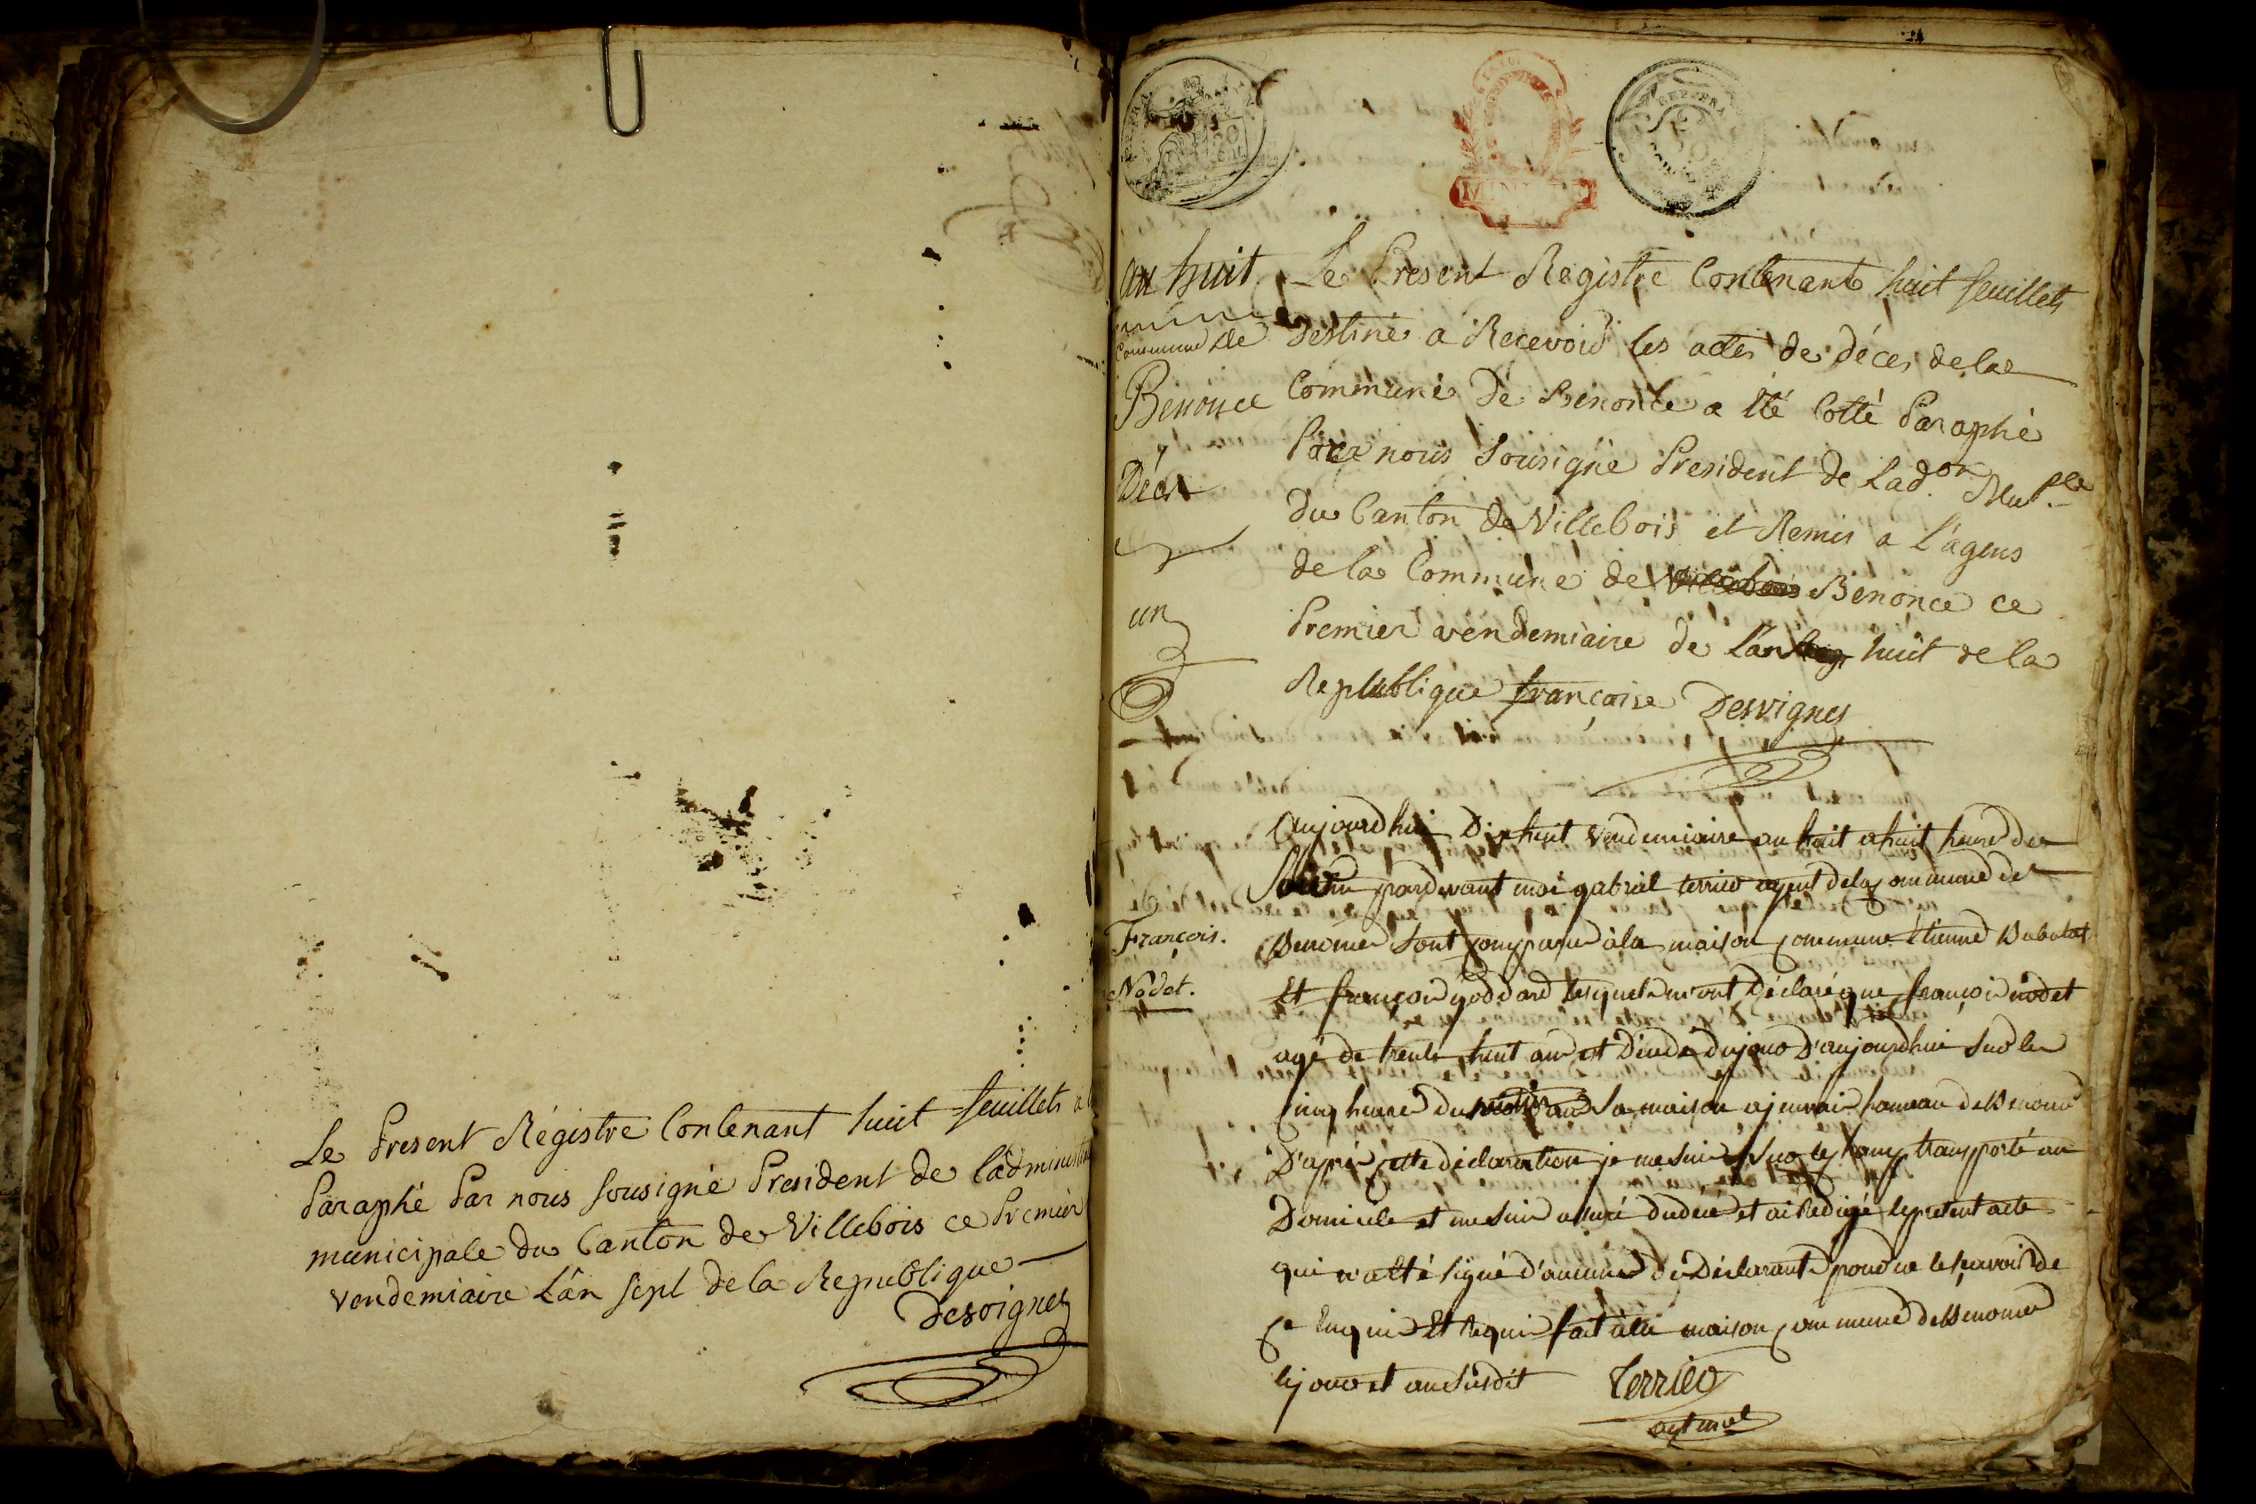 Le Present Régistre Contenant huit feuillets a
Paraphé Par nous sousigné President de l'administ
municipale du Canton de Villebois ce Premier
vendemiaire L'an sept de la Republique
Desvignes
an huit
Commune de
Benonce
Décès
un
François.
Nodet.
Le Present Registre Contenant huit feuillets
destiné a Recevoir les actes de déces de la
Commune De Benonce a été Cotté Paraphé
Par nous Sousigné President de Lad.on Mu.ple
du Canton de Villebois et Remis a l'agens
de la Commune de Villebois Benonce ce
Premier vendemiaire de L'an huit de la
Republique françoise Desvignes
Aujourdhui Dix huit vendemiaire an huit a huit heure du
pardevant moi gabriel terrier agent de la commune de
Benonce sont comparu à la maison commune Etienne Babolat
Et françois goddard lesquels m'ont déclaré que françois nodet
agé de trente huit ans est Décédé du jour D'aujourdhui sur les
cinq heures du matin dans sa maison a hameau de Benonce
D'après cette déclaration je me suis sur le champ transporté au
Domicile et me suis assuré dudécé et ai Redigé le présent acte
qui n'a été signé d'aucuns des Déclarants pour ne le sçavoir de
ce Enquis Et Requis fait à la maison commune de Benonce
le jour et an susdit Terrier
agt mal